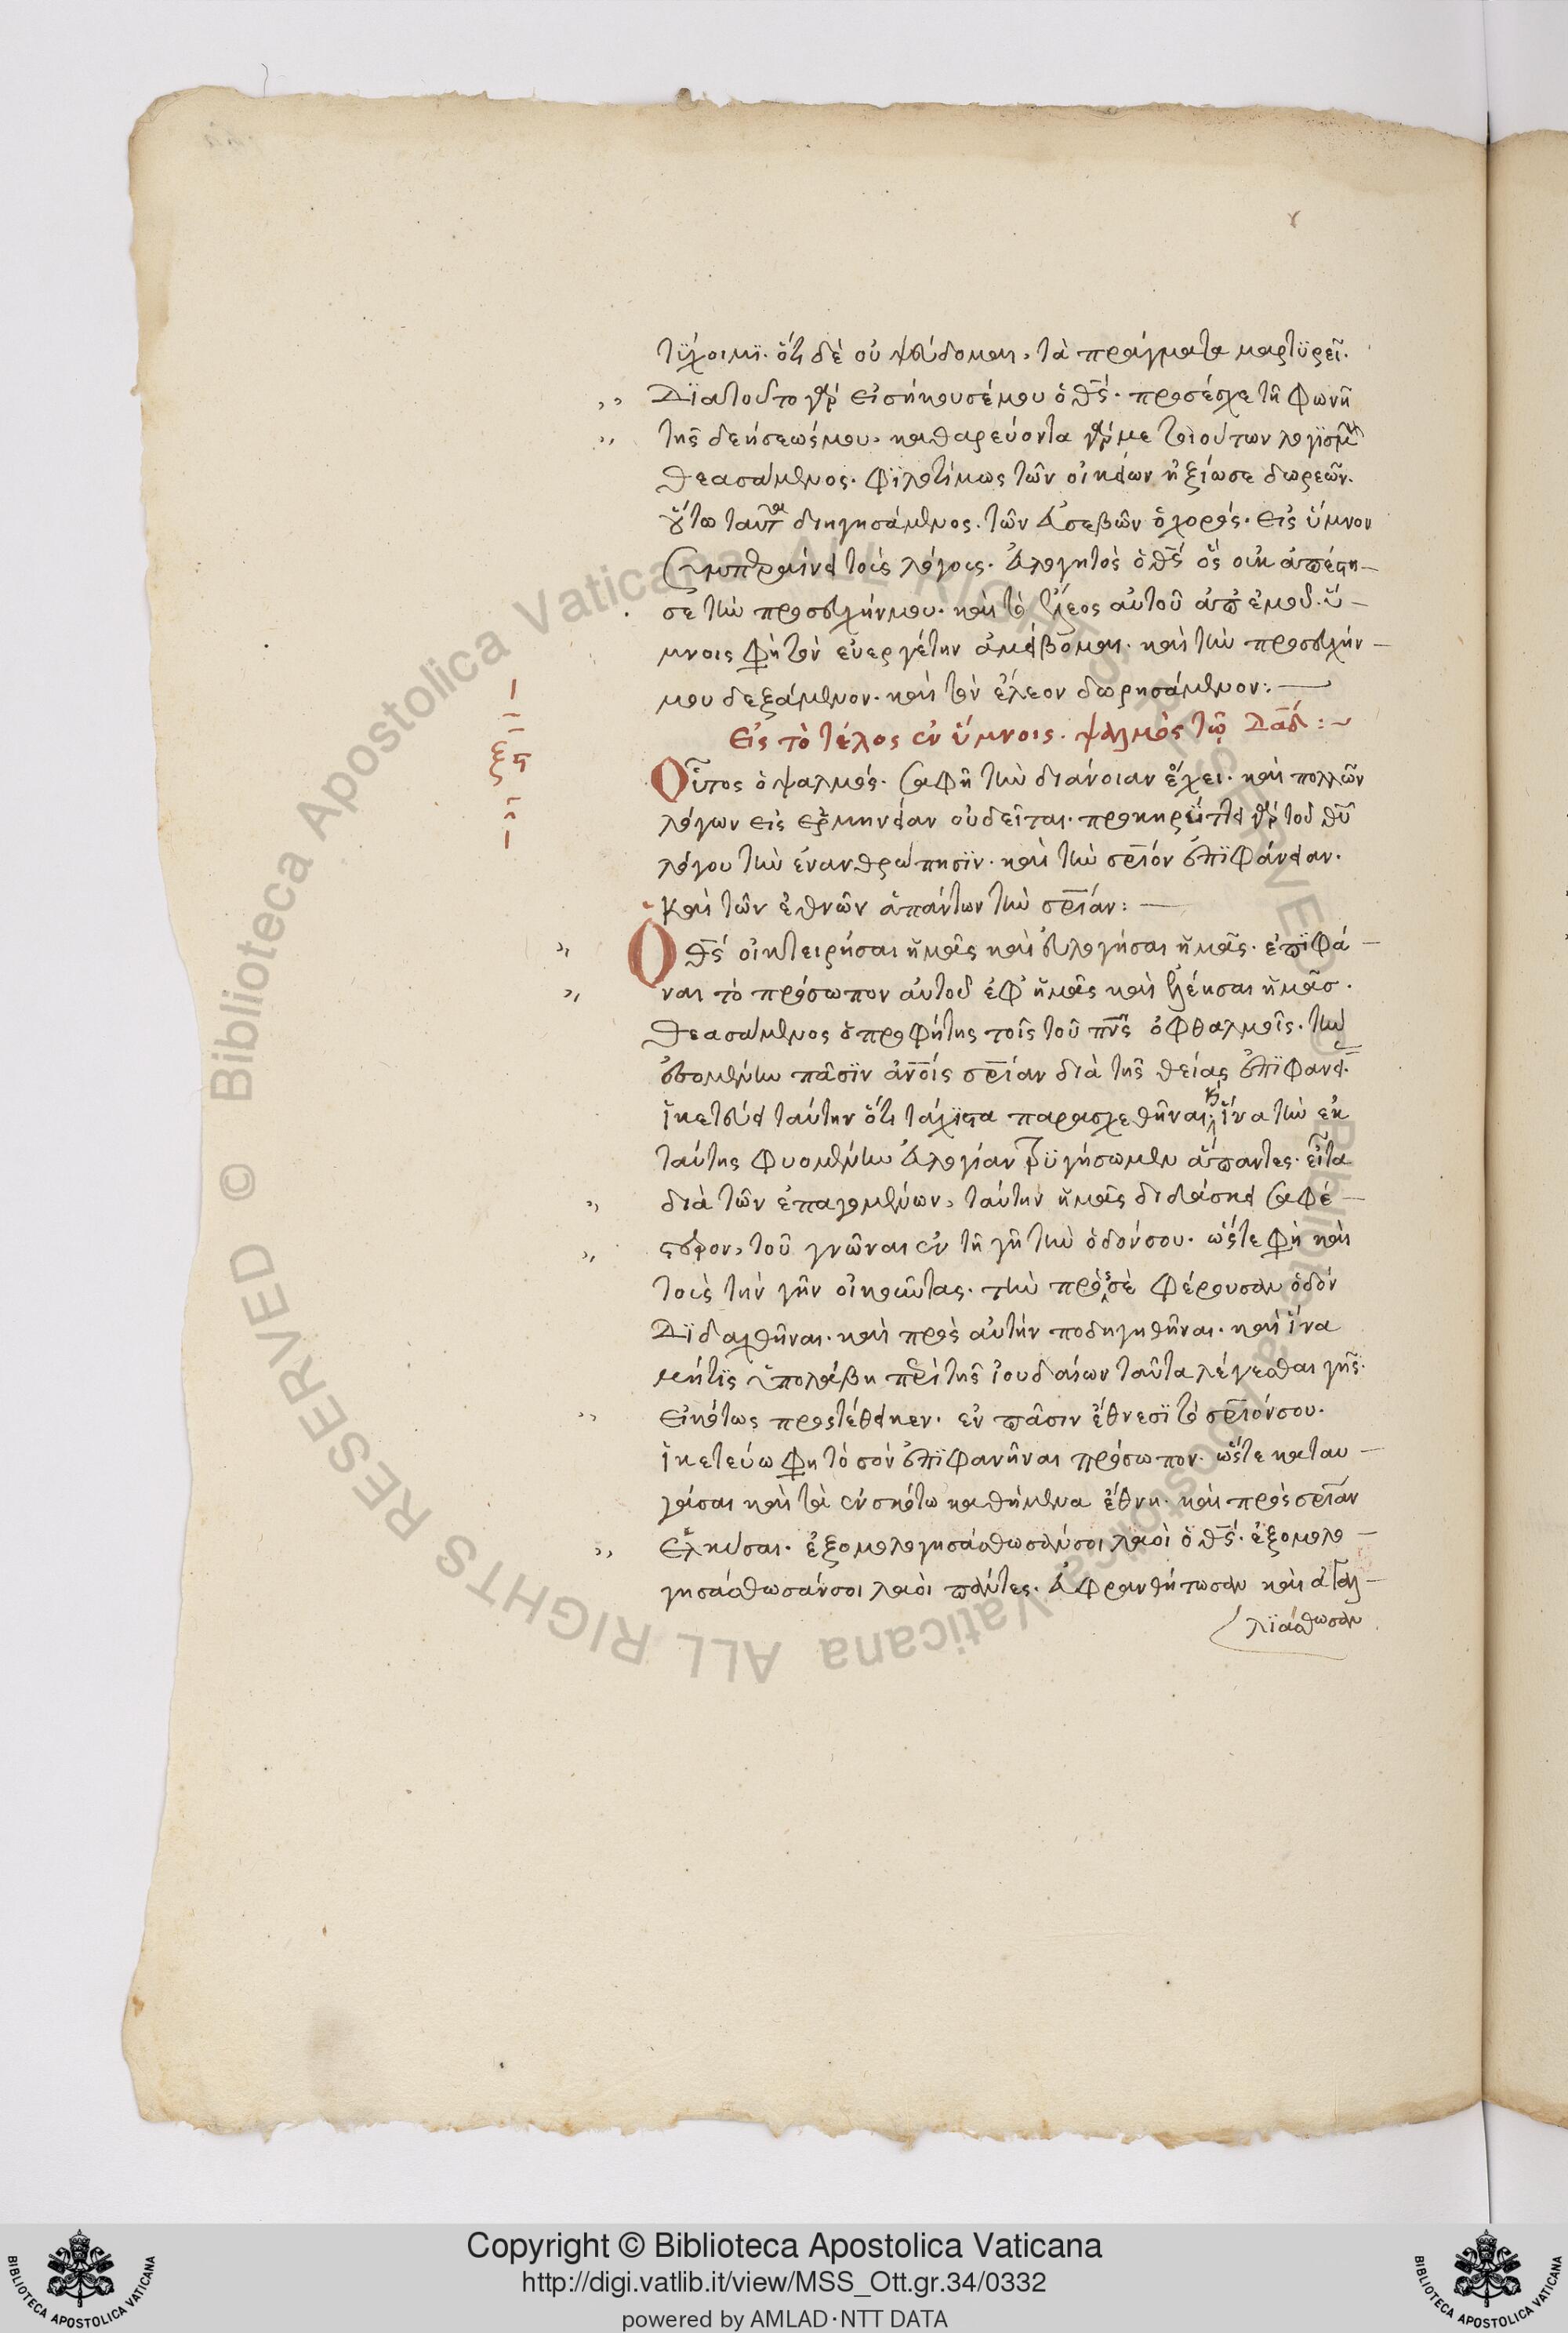 τύχοιμϊ. ὅτι δὲ οὐ ψεύδομαι, τὰ πράγματα μαρτϋρεῖ.
Δϊατοῦτο γὰρ εἰσήκουσέ μου ὁ θς̄. προσέσχε τῆ φωνῆ
τῆς δεήσεώς μου. καθαρεύοντα γάρ με τοιούτων λογϊσμῶν
θεασάμενος. φϊλοτίμως τῶν οἰκείων ἠξίωσε δωρεῶν.
οὕτω ταῦτα διηγησάμενος. τῶν εὐσεβῶν ὁ χορός. εἰς ὕμνον
συμπεραίνει τοὺς λόγους. εὐλογητὸς ὁ θς̄ ὃς οὐκ ἀπέστη-
σε τὴν προσευχήν μου. καὶ τὸ ἔλεος αὐτοῦ ἀπ' ἐμοῦ. ὕ-
μνοις φησὶ τὸν εὐεργέτην ἀμείβομαι. καὶ τὴν προσευχήν
μου δεξάμενον. καὶ τὸν ἔλεον δωρησάμενον:—
Εἰς τὸ τέλος ἐν ὕμνοις. ψαλμὸς τῷ Δᾱδ:~
ξς
Οὗτος ὁ ψαλμός. σαφῆ τὴν διάνοιαν ἔχει. καὶ πολλῶν
λόγων εἰς ἑρμηνείαν οὐ δεῖται. προκηρύττει γὰρ τοῦ θῡ
λόγου τὴν ἐνανθρώπησϊν. καὶ τὴν σρ̄ιόν ἐπϊφάνειαν.
καὶ τῶν ἐθνῶν ἁπάντων τὴν σρ̄ίαν:—
Ὁ θς̄ οἰκτειρήσαι ἡμᾶς καὶ εὐλογήσαι ἡμᾶς. ἐπϊφά-
ναι τὸ πρόσωπον αὐτοῦ ἐφ' ἡμᾶς καὶ ἐλεήσαι ἡμᾶσ.
θεασάμενος ὁ προφήτης τοῖς τοῦ πν̄ς ὀφθαλμοῖς. τὴν
ἐσομένην πᾶσϊν ἀν̄οις σρ̄ίαν διὰ τῆς θείας ἐπϊφανεί.
ἱκετεύει ταύτην ὅτι τάχϊστα παρασχεθῆναι. καὶ ἵνα τὴν ἐκ
ταύτης φυομένην εὐλογίαν τρϋγήσωμεν ἅπαντες. εἶτα
διὰ τῶν ἐπαγομένων, ταύτην ἡμᾶς διδάσκει σαφέ-
στερον, τοῦ γνῶναι ἐν τῆ γῆ τὴν ὁδόν σου. ὥστε φησὶ καὶ
τοὺς τὴν γῆν οἰκοῦντας. τὴν πρὸς σὲ φέρουσαν ὁδὸν
Δϊδαχθῆναι. καὶ πρὸς αὐτὴν ποδηγηθῆναι. καὶ ἵνα
μήτϊς ὑπολάβη περὶ τῆς ἰουδαίων ταῦτα λέγεσθαι γῆς.
εἰκότως προστέθεικεν. ἐν πᾶσιν ἔθνεσϊ τὸ σρ̄ιόν σου.
ἱκετεύω φησὶ τὸ σὸν ἐπϊφανῆναι πρόσωπον. ὥστε καταυ-
γάσαι καὶ τὰ ἐν σκότω καθήμενα ἔθνη. καὶ πρὸς σρ̄ίαν
ἑλκύσαι. ἐξομολογησάσθωσάν σοι λαοὶ ὁ θς̄. ἐξομολο-
γησάσθωσάν σοι λαοὶ πάντες. εὐφρανθήτωσαν καὶ ἀγαλ-
λϊάσθωσαν
Copyright © Biblioteca Apostolica Vaticana
http://digi.vatlib.it/view/MSS_Ott.gr.34/0332
powered by AMLAD·NTT DATA
BIBLIOTECA APOSTOLICA VATICANA
BIBLIOTECA APOSTOLICA VATICANA
© Biblioteca Apostolica Vaticana ALL RIGHTS RESERVED
© Biblioteca Apostolica Vaticana ALL RIGHTS RESERVED